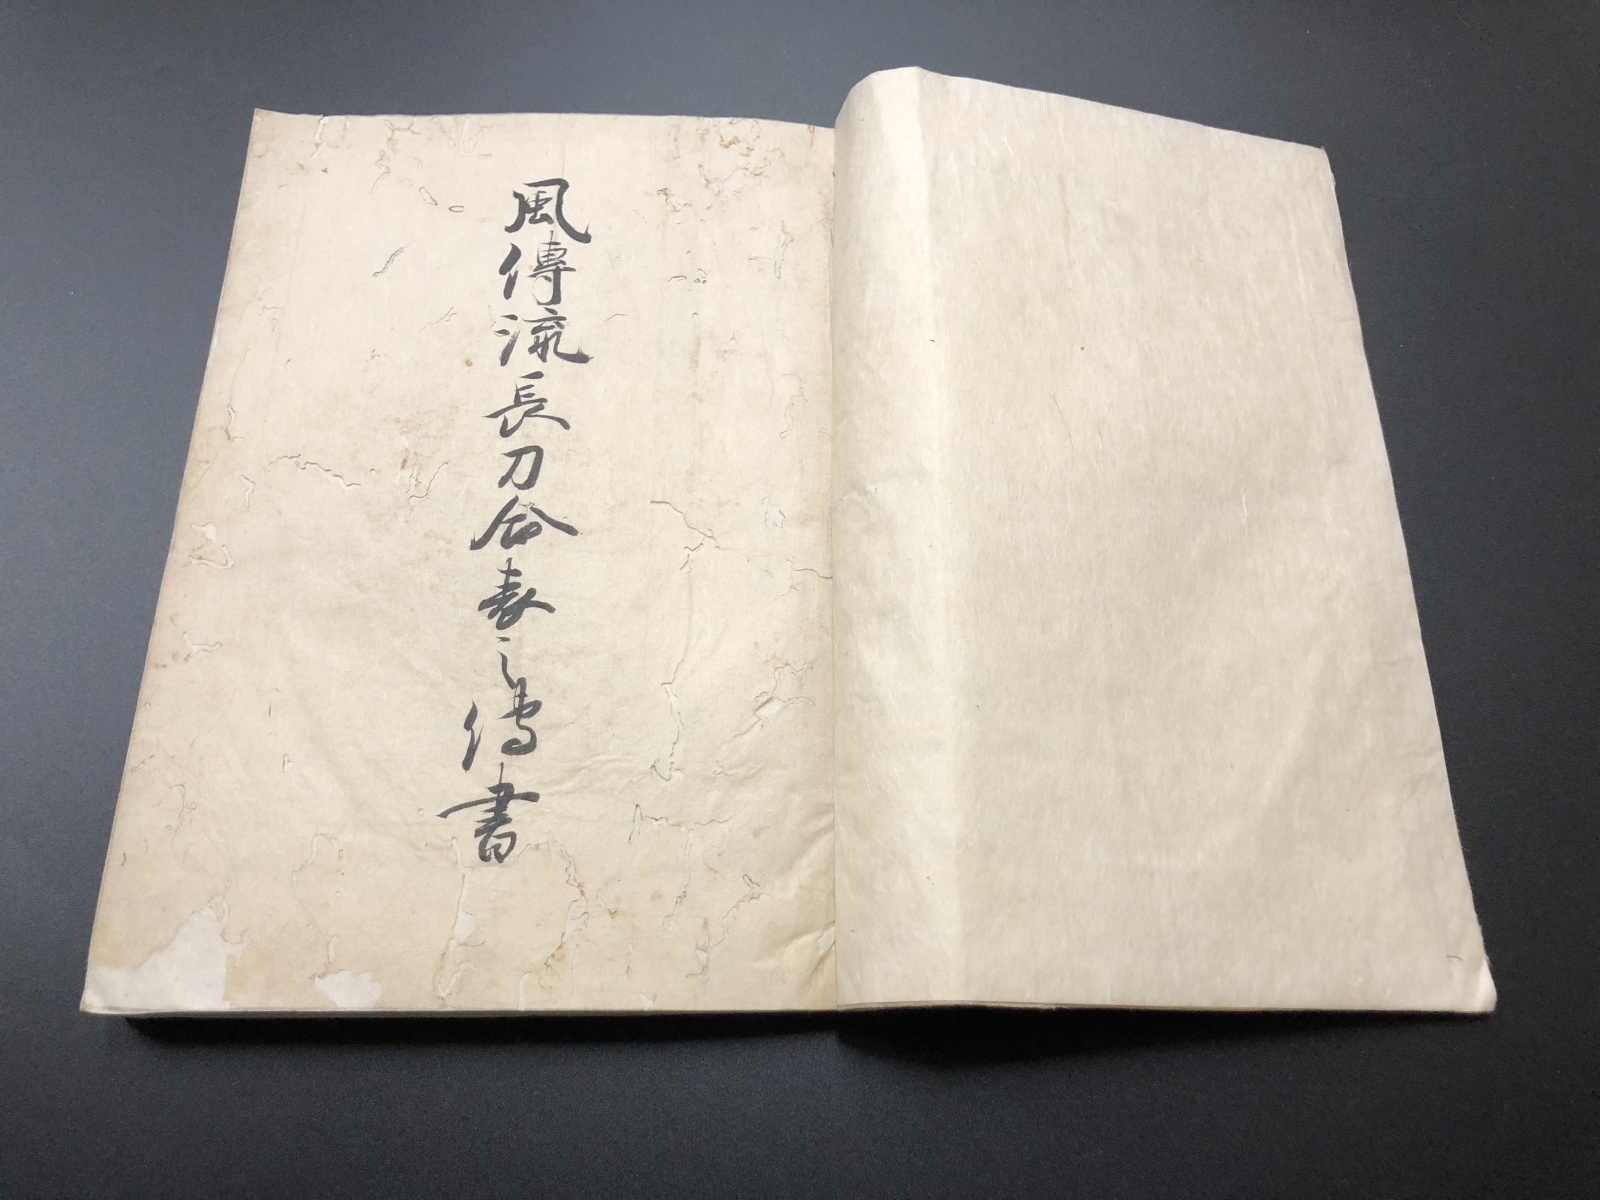 風傳流長刀合表之傳書